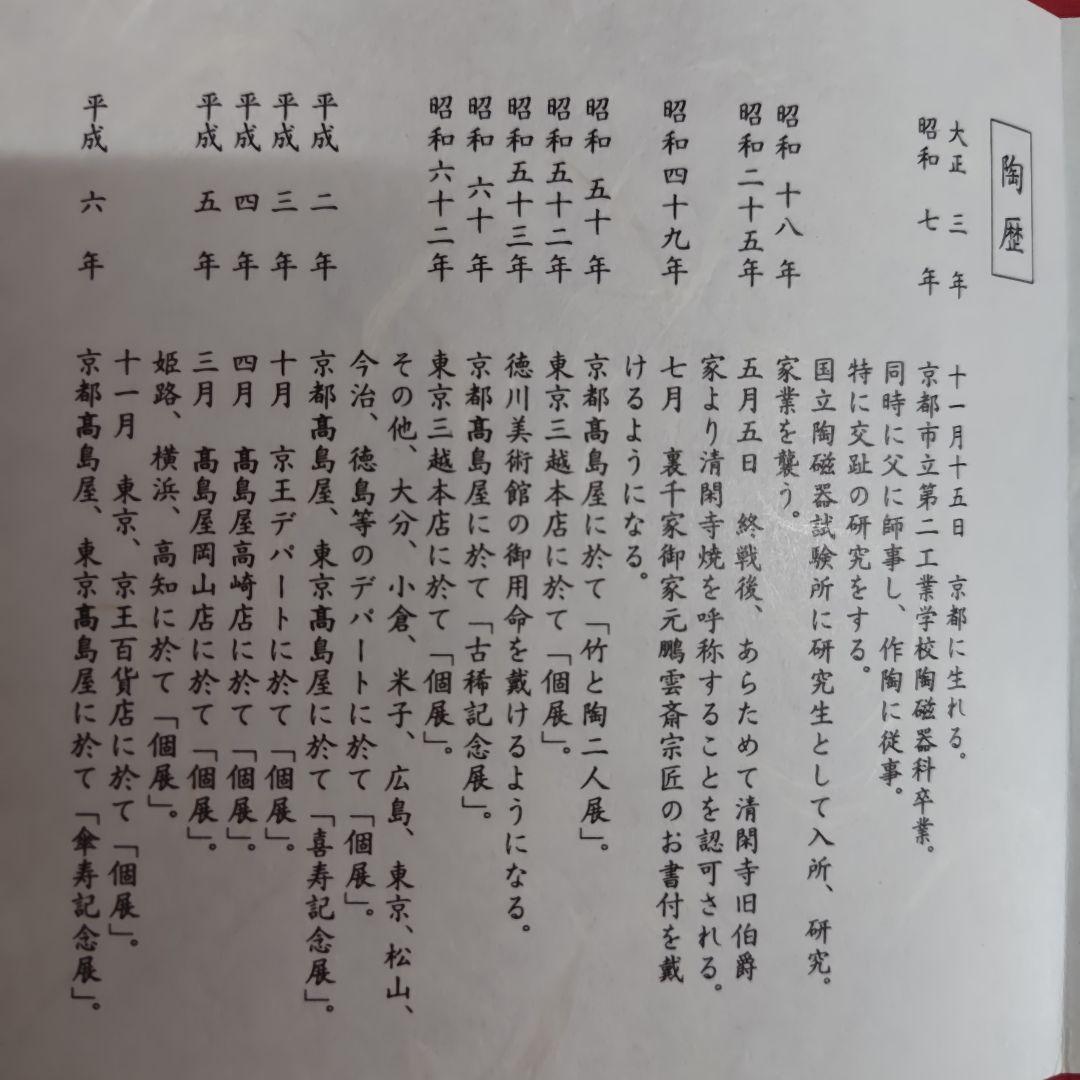 陶歴
大正 三 年 十一月十五日 京都に生れる。
昭和 七 年 京都市立第二工業学校陶磁器科卒業。
同時に父に師事し、作陶に従事。
特に交趾の研究をする。
国立陶磁器試験所に研究生として入所、研究。
昭和 十八 年 家業を襲う。
昭和二十五年 五月五日 終戦後、あらためて清閑寺旧伯爵
家より清閑寺焼を呼称することを認可される。
昭和四十九年 七月 裏千家御家元鵬雲斎宗匠のお書付を戴
けるようになる。
昭和 五十 年 京都髙島屋に於て「竹と陶二人展」。
昭和五十二年 東京三越本店に於て「個展」。
昭和五十三年 徳川美術館の御用命を戴けるようになる。
昭和 六十 年 京都髙島屋に於て「古稀記念展」。
昭和六十二年 東京三越本店に於て「個展」。
その他、大分、小倉、米子、広島、東京、松山、
今治、徳島等のデパートに於て「個展」。
平成 二 年 京都髙島屋、東京髙島屋に於て「喜寿記念展」。
平成 三 年 十月 京王デパートに於て「個展」。
平成 四 年 四月 髙島屋高崎店に於て「個展」。
平成 五 年 三月 髙島屋岡山店に於て「個展」。
姫路、横浜、高知に於て「個展」。
十一月 東京、京王百貨店に於て「個展」。
平成 六 年 京都髙島屋、東京髙島屋に於て「傘寿記念展」。